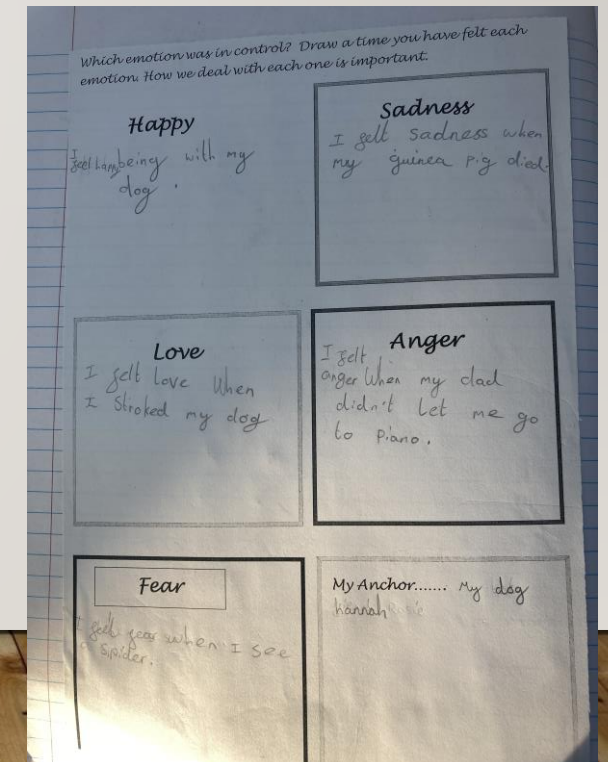 Which emotion was in control? Draw a time you have felt each
emotion. How we deal with each one is important.
Happy
I
feel happy being with my
dog.
Sadness
I felt sadness when
my guinea pig died.
Love
I felt love when
I stroked my dog
Anger
I felt
anger when my dad
didn't let me go
to piano.
Fear
I feel fear when I see
a spider.
My Anchor....... My dog
hannah